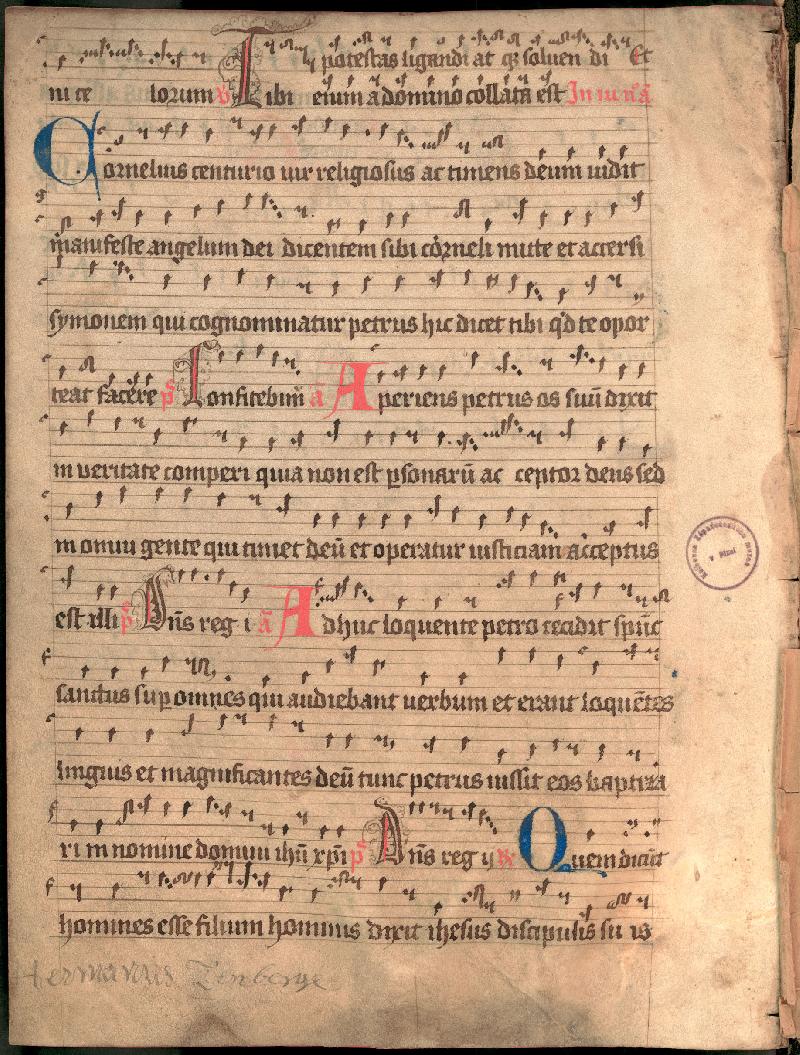 potestas ligandi at qꝫ soluen di Et
ni ce lorum V Tibi enim a domino collata est In iii nͣ a
Cornelius centurio uir religiosus ac timens deum uidit
manifeste angelum dei dicentem sibi corneli mitte et accersi
symonem qui cognominatur petrus hic dicet tibi qͥd te opor
teat facere ps Confitebimͬ ā Aperiens petrus os suū dixit
in veritate comperi quia non est ꝑsonarū ac ceptor deus sed
in omni gente qui timet deū et operatur iusticiam acceptus
est illi ps Dn̄s reg i ā Adhuc loquente petro cecidit spūc
sanctus sup omnes qui audiebant uerbum et erant loquētes
linguis et magnificantes deū tunc petrus iussit eos baptiza
ri in nomine domini ihū xpī ps Dn̄s reg ij R Quem dicūt
homines esse filium hominis dixit ihesus discipulis su is
Hermannus Zenberge